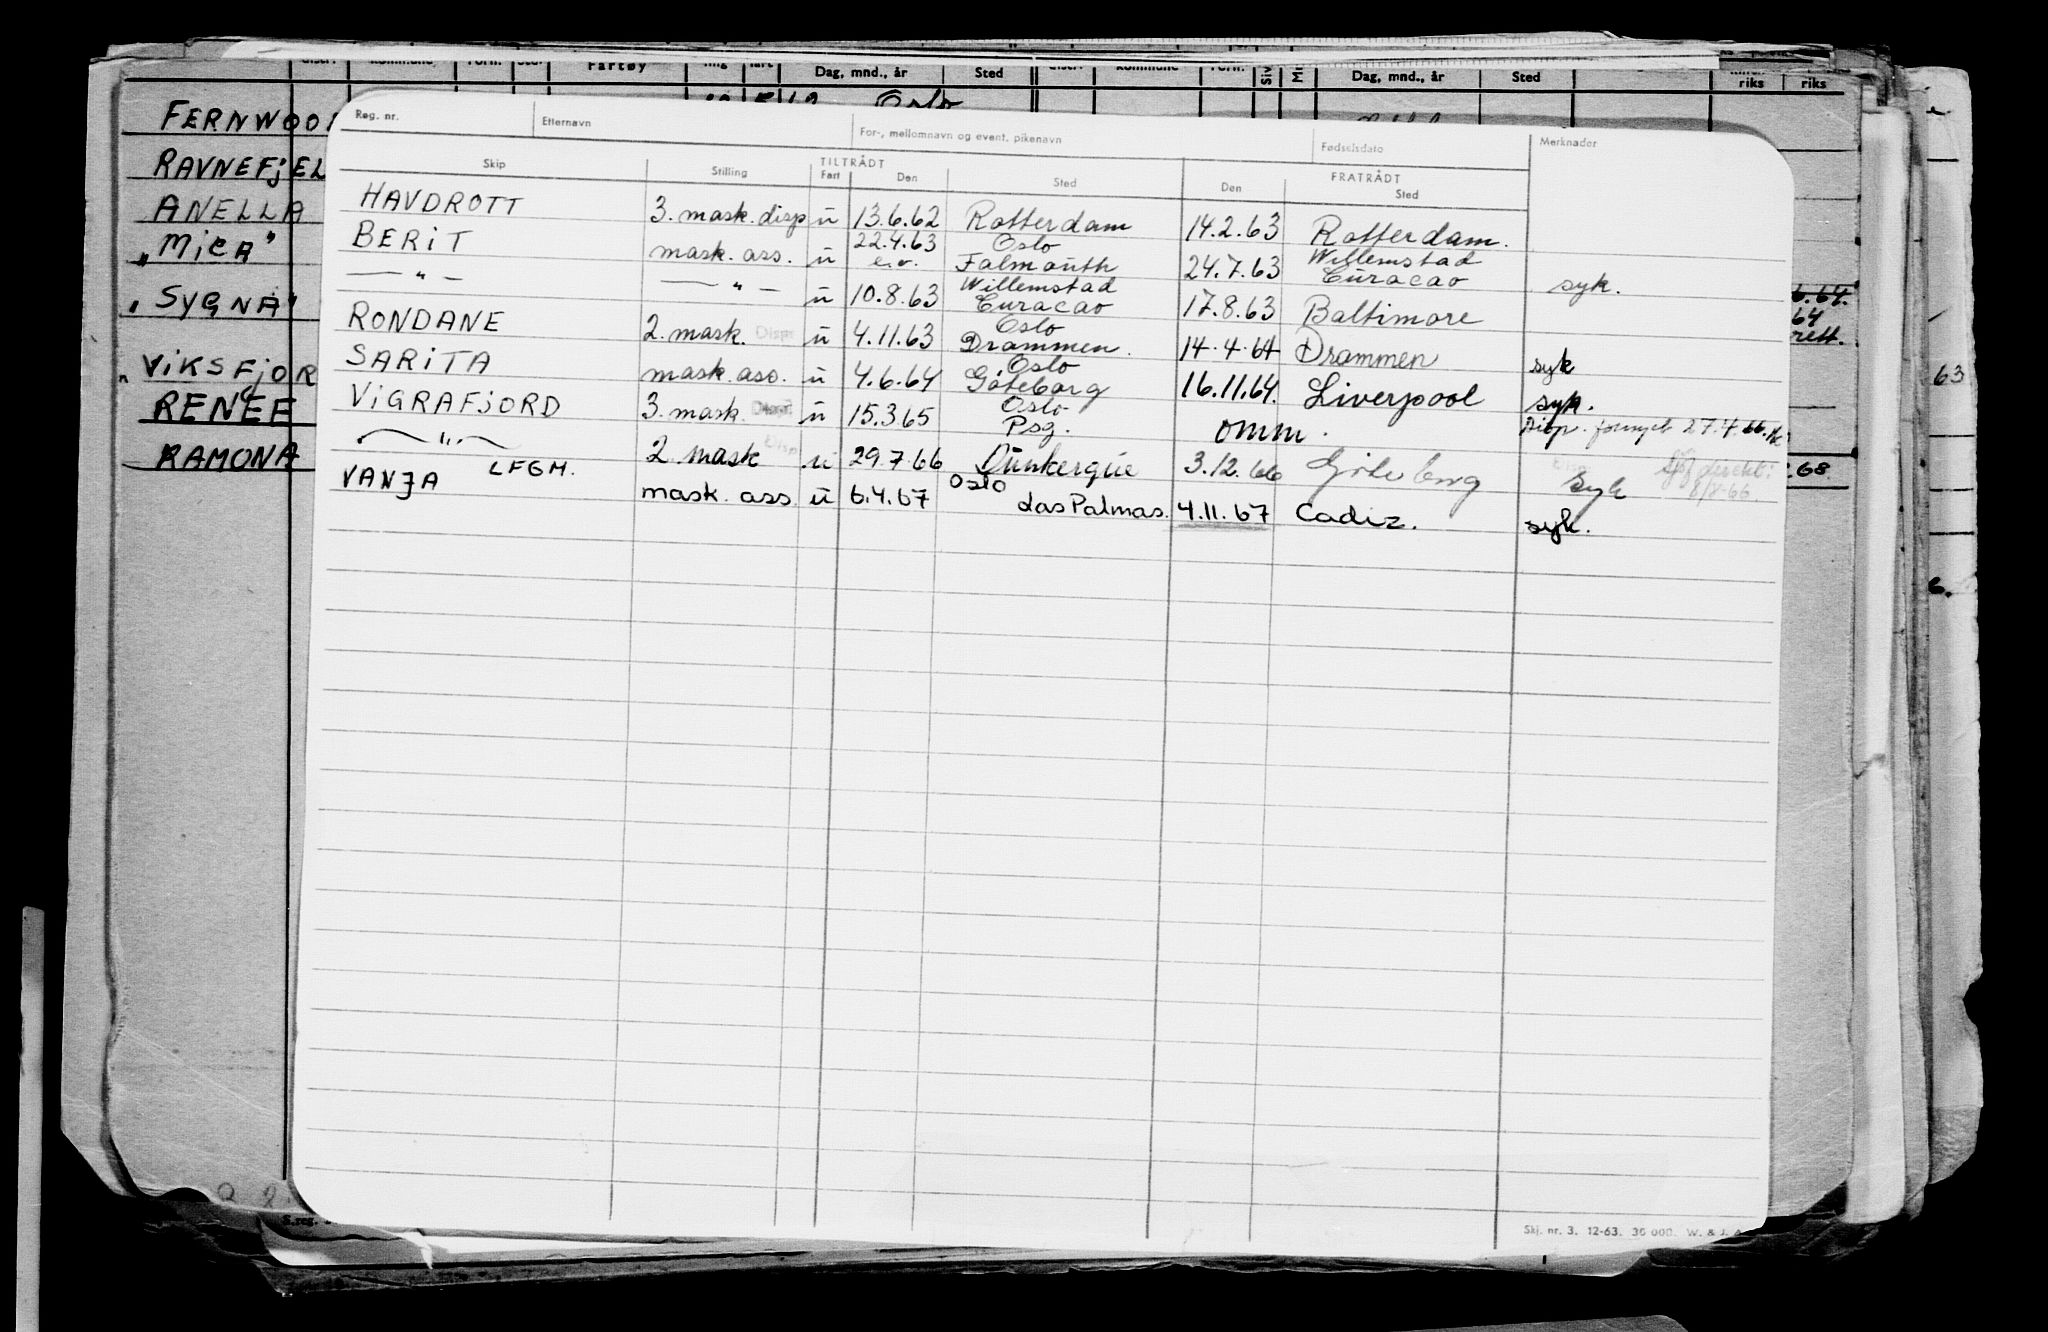 Fartøy Dag, mnd., år Sted Dag, mnd., år Sted riks riks
Oslo
FERNWOO
RAVNEFjEL
ANELLA
"MICA"
"SYGNA"
VIKSFjOR
RENEE
RAMONA
Reg. nr. Etternavn For-, mellomnavn og event. pikenavn Fødselsdato Merknader
TILTRÅDT FRATRÅDT
Skip Stilling Fart Den Sted Den Sted
HAVDROTT 3. mask. disp u 13.6.62 Rotterdam 14.2.63 Rotterdam.
BERIT mask. ass. u 22.4.63 e.o. Oslo Falmouth 24.7.63 Willemstad Curacao syk.
— " — — " — u 10.8.63 Willemstad Curacao 17.8.63 Baltimore
RONDANE 2. mask. Disp u 4.11.63 Oslo Drammen. 14.4.64 Drammen syk
SARITA mask. ass. u 4.6.64 Oslo Göteborg 16.11.64. Liverpool syk.
VIGRAFJORD 3. mask. Disp. u 15.3.65 Oslo Psg. omm. Disp. fornyet 27.4.66.
— " — LFGM. 2. mask Disp u 29.7.66 Dunkerque 3.12.66 Göteborg syk 8/8-66
VANJA mask. ass. u 6.4.67 Oslo Las Palmas. 4.11.67 Cadiz. syk.
6.64.
64
rett.
68.
63
6.
S.reg.
Skj. nr. 3. 12-63. 30 000. W. & J.